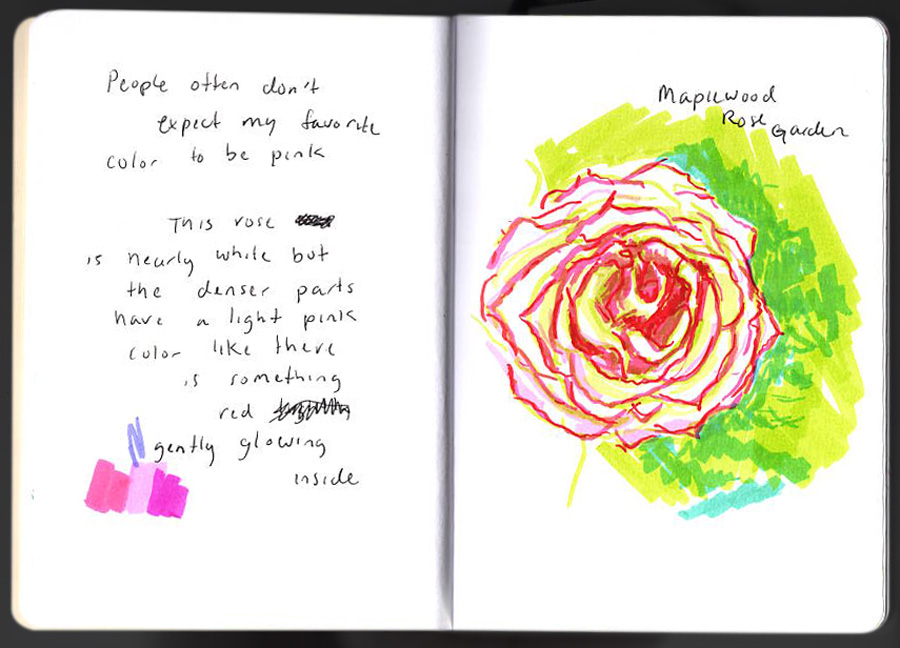 People often don't
expect my favorite
color to be pink
This rose
is nearly white but
the denser parts
have a light pink
color like there
is something
red
gently glowing
inside
Maplewood
Rose
Garden